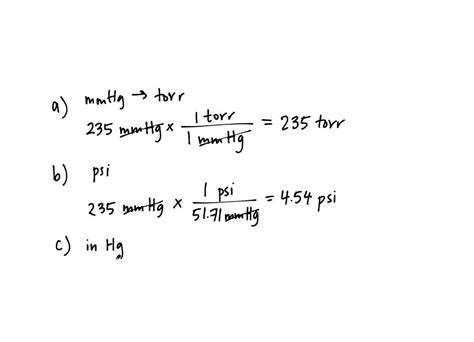 a) mmHg → torr
235 mmHg × 1 torr / 1 mmHg = 235 torr
b) psi
235 mmHg × 1 psi / 51.71 mmHg = 4.54 psi
c) in Hg